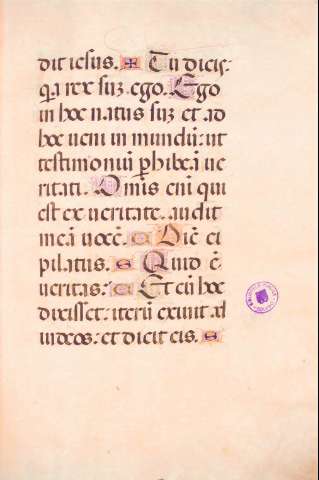 dit iesus. ✠ Tu dicis:
q̃a rex suʒ ego. Ego
in hoc natus suʒ et ad
hoc ueni in mundũ: ut
testimoniũ ꝑhibeã ue
ritati. Omĩs em̃ qui
est ex ueritate. audit
meã uocẽ. C Diẽ ei
pilatus. S Quid ẽ
ueritas: C Et cũ hoc
dixisset: iterũ exiuit ad
iudeos: et dicit eis. S